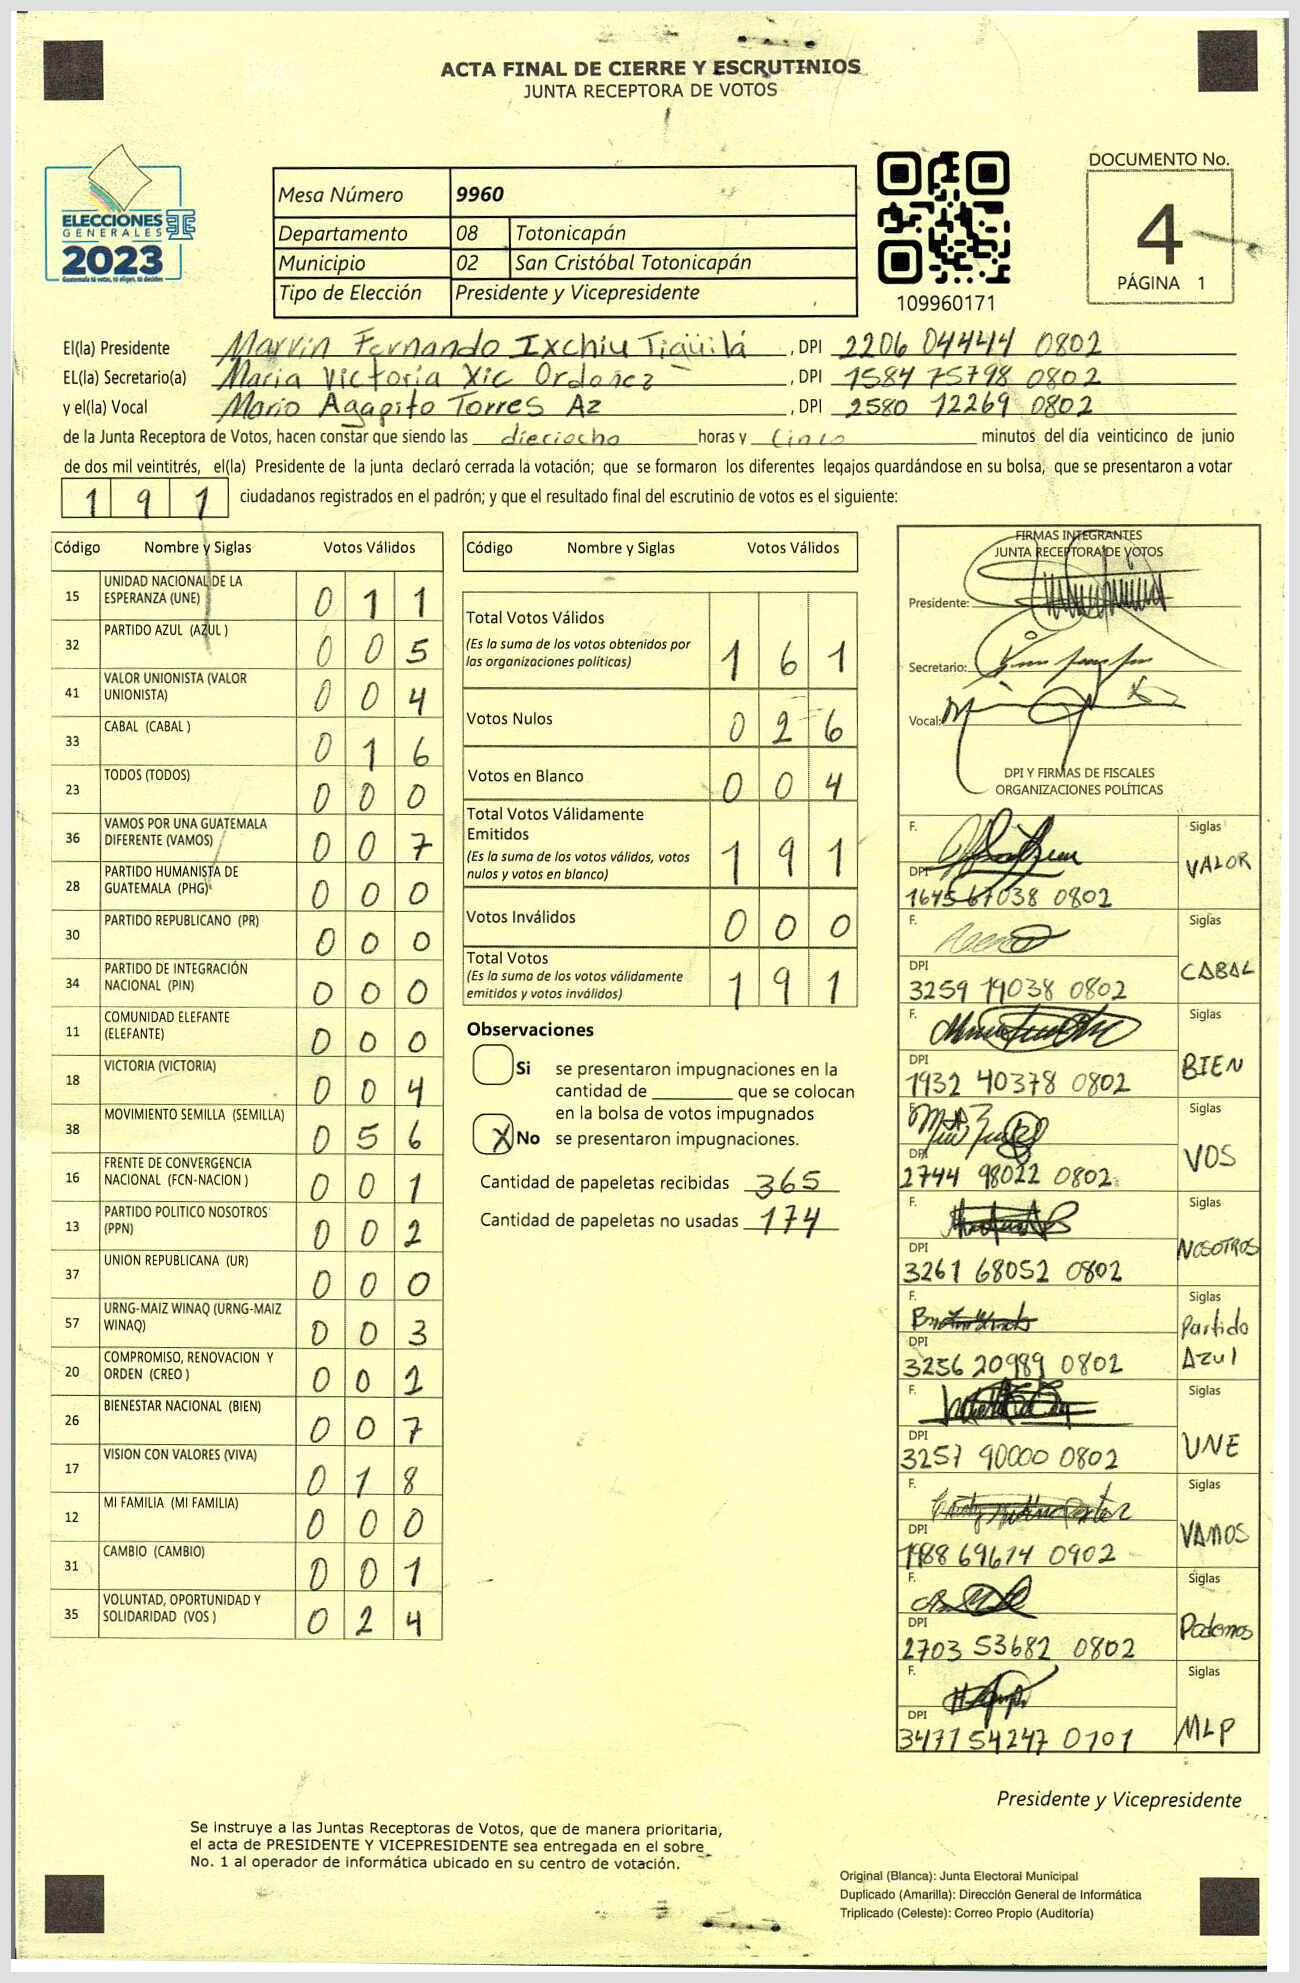 ACTA FINAL DE CIERRE Y ESCRUTINIOS
JUNTA RECEPTORA DE VOTOS
ELECCIONES
GENERALES
2023
Guatemala tú votas, tú eliges, tú decides
Mesa Número 9960
Departamento 08 Totonicapán
Municipio 02 San Cristóbal Totonicapán
Tipo de Elección Presidente y Vicepresidente
109960171
DOCUMENTO No.
4
PÁGINA 1
El(la) Presidente Marvin Fernando Ixchiu Tiguilá , DPI 2206 04444 0802
EL(la) Secretario(a) Maria Victoria Xic Ordoñez , DPI 1584 75798 0802
y el(la) Vocal Mario Agapito Torres Az , DPI 2580 12269 0802
de la Junta Receptora de Votos, hacen constar que siendo las dieciocho horas y cinco minutos del día veinticinco de junio
de dos mil veintitrés, el(la) Presidente de la junta declaró cerrada la votación; que se formaron los diferentes legajos guardándose en su bolsa, que se presentaron a votar
191 ciudadanos registrados en el padrón; y que el resultado final del escrutinio de votos es el siguiente:
Código Nombre y Siglas Votos Válidos
15 UNIDAD NACIONAL DE LA ESPERANZA (UNE) 0 1 1
32 PARTIDO AZUL (AZUL ) 0 0 5
41 VALOR UNIONISTA (VALOR UNIONISTA) 0 0 4
33 CABAL (CABAL ) 0 1 6
23 TODOS (TODOS) 0 0 0
36 VAMOS POR UNA GUATEMALA DIFERENTE (VAMOS) 0 0 7
28 PARTIDO HUMANISTA DE GUATEMALA (PHG) 0 0 0
30 PARTIDO REPUBLICANO (PR) 0 0 0
34 PARTIDO DE INTEGRACIÓN NACIONAL (PIN) 0 0 0
11 COMUNIDAD ELEFANTE (ELEFANTE) 0 0 0
18 VICTORIA (VICTORIA) 0 0 4
38 MOVIMIENTO SEMILLA (SEMILLA) 0 5 6
16 FRENTE DE CONVERGENCIA NACIONAL (FCN-NACION ) 0 0 1
13 PARTIDO POLITICO NOSOTROS (PPN) 0 0 2
37 UNION REPUBLICANA (UR) 0 0 0
57 URNG-MAIZ WINAQ (URNG-MAIZ WINAQ) 0 0 3
20 COMPROMISO, RENOVACION Y ORDEN (CREO ) 0 0 2
26 BIENESTAR NACIONAL (BIEN) 0 0 7
17 VISION CON VALORES (VIVA) 0 1 8
12 MI FAMILIA (MI FAMILIA) 0 0 0
31 CAMBIO (CAMBIO) 0 0 1
35 VOLUNTAD, OPORTUNIDAD Y SOLIDARIDAD (VOS ) 0 2 4
Código Nombre y Siglas Votos Válidos
Total Votos Válidos
(Es la suma de los votos obtenidos por
las organizaciones políticas) 1 6 1
Votos Nulos 0 2 6
Votos en Blanco 0 0 4
Total Votos Válidamente
Emitidos
(Es la suma de los votos válidos, votos
nulos y votos en blanco) 1 9 1
Votos Inválidos 0 0 0
Total Votos
(Es la suma de los votos válidamente
emitidos y votos inválidos) 1 9 1
Observaciones
Si se presentaron impugnaciones en la
cantidad de ________ que se colocan
en la bolsa de votos impugnados
X No se presentaron impugnaciones.
Cantidad de papeletas recibidas 365
Cantidad de papeletas no usadas 174
FIRMAS INTEGRANTES
JUNTA RECEPTORA DE VOTOS
Presidente:
Secretario:
Vocal:
DPI Y FIRMAS DE FISCALES
ORGANIZACIONES POLÍTICAS
F. Siglas
DPI VALOR
1645 67038 0802
F. Siglas
DPI CABAL
3259 19038 0802
F. Siglas
DPI BIEN
1932 40378 0802
F. Siglas
DPI VOS
2744 98022 0802
F. Siglas
DPI NOSOTROS
3261 68052 0802
F. Siglas
DPI Partido Azul
3256 20989 0802
F. Siglas
DPI UNE
3257 90000 0802
F. Siglas
DPI VAMOS
1988 69614 0902
F. Siglas
DPI Podemos
2703 53682 0802
F. Siglas
DPI MLP
3477 54247 0101
Presidente y Vicepresidente
Se instruye a las Juntas Receptoras de Votos, que de manera prioritaria,
el acta de PRESIDENTE Y VICEPRESIDENTE sea entregada en el sobre
No. 1 al operador de informática ubicado en su centro de votación.
Original (Blanca): Junta Electoral Municipal
Duplicado (Amarilla): Dirección General de Informática
Triplicado (Celeste): Correo Propio (Auditoría)